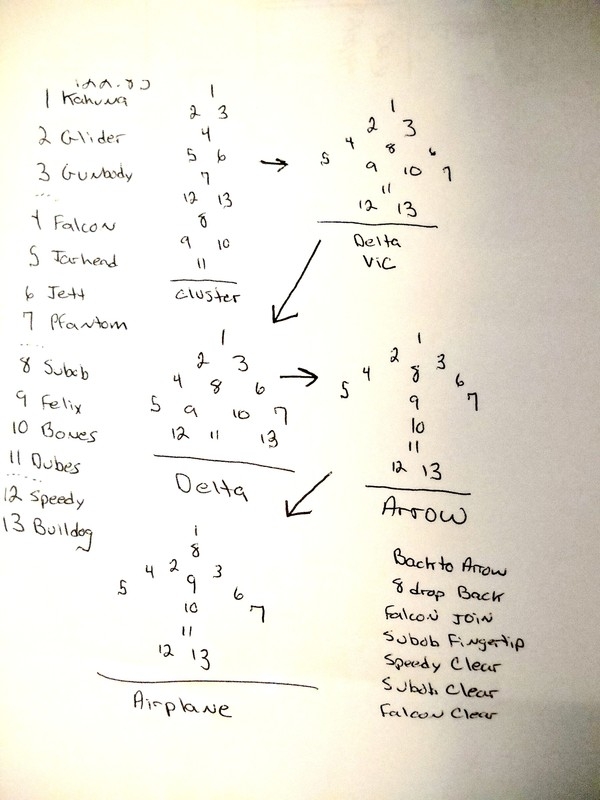 1 Kahuna
2 Glider
3 Gunbody
4 Falcon
5 Jarhead
6 Jett
7 Pfantom
8 Subob
9 Felix
10 Bones
11 Dubes
12 Speedy
13 Bulldog
1
2 3
4
5 6
7
12 13
8
9 10
11
Cluster
1
2 3
4 8 6
5 9 10 7
11
12 13
Delta
Vic
1
2 3
4 8 6
5 9 10 7
12 11 13
Delta
1
2 3
4 8 6
5 9 7
10
11
12 13
Arrow
1
8
4 2 3
5 9 6
10 7
11
12 13
Airplane
Back to Arrow
8 drop Back
Falcon Join
Subob Fingertip
Speedy Clear
Subob Clear
Falcon Clear